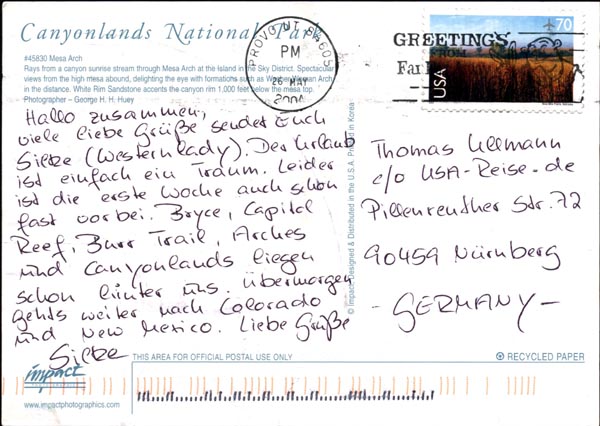 Canyonlands National Park
#45830 Mesa Arch
Rays from a canyon sunrise stream through Mesa Arch at the Island in the Sky District. Spectacular
views from the high mesa abound, delighting the eye with formations such as Washer Woman Arch
in the distance. White Rim Sandstone accents the canyon rim 1,000 feet below the mesa top.
Photographer – George H. H. Huey
Hallo zusammen,
viele liebe Grüße sendet Euch
Silke (Westernlady). Der Urlaub
ist einfach ein Traum. Leider
ist die erste Woche auch schon
fast vorbei. Bryce, Capitol
Reef, Burr Trail, Arches
und Canyonlands liegen
schon hinter uns. übermorgen
gehts weiter nach Colorado
und New Mexico. Liebe Grüße
Silke
PROVO UT 84605
PM
26 MAY
2004
GREETINGS
FROM
70
USA
Thomas Ullmann
c/o USA-Reise.de
Pillenreuther Str. 72
90459 Nürnberg
- GERMANY -
© Impact Designed & Distributed in the U.S.A. Printed in Korea
THIS AREA FOR OFFICIAL POSTAL USE ONLY
RECYCLED PAPER
impact
www.impactphotographics.com